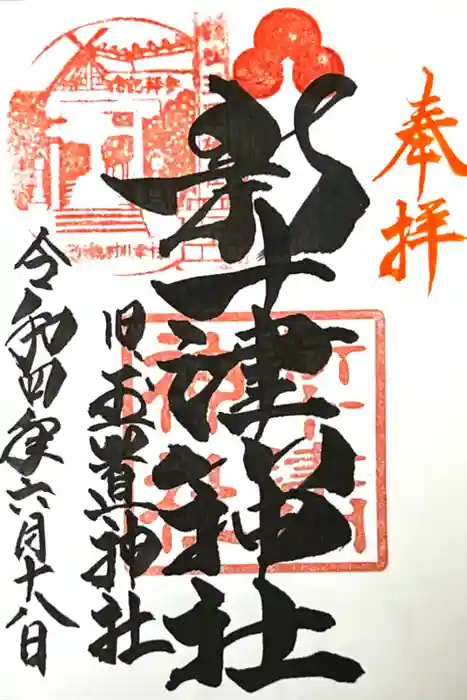 奉拝
新十津川神社
旧玉置神社
令和四年六月十八日